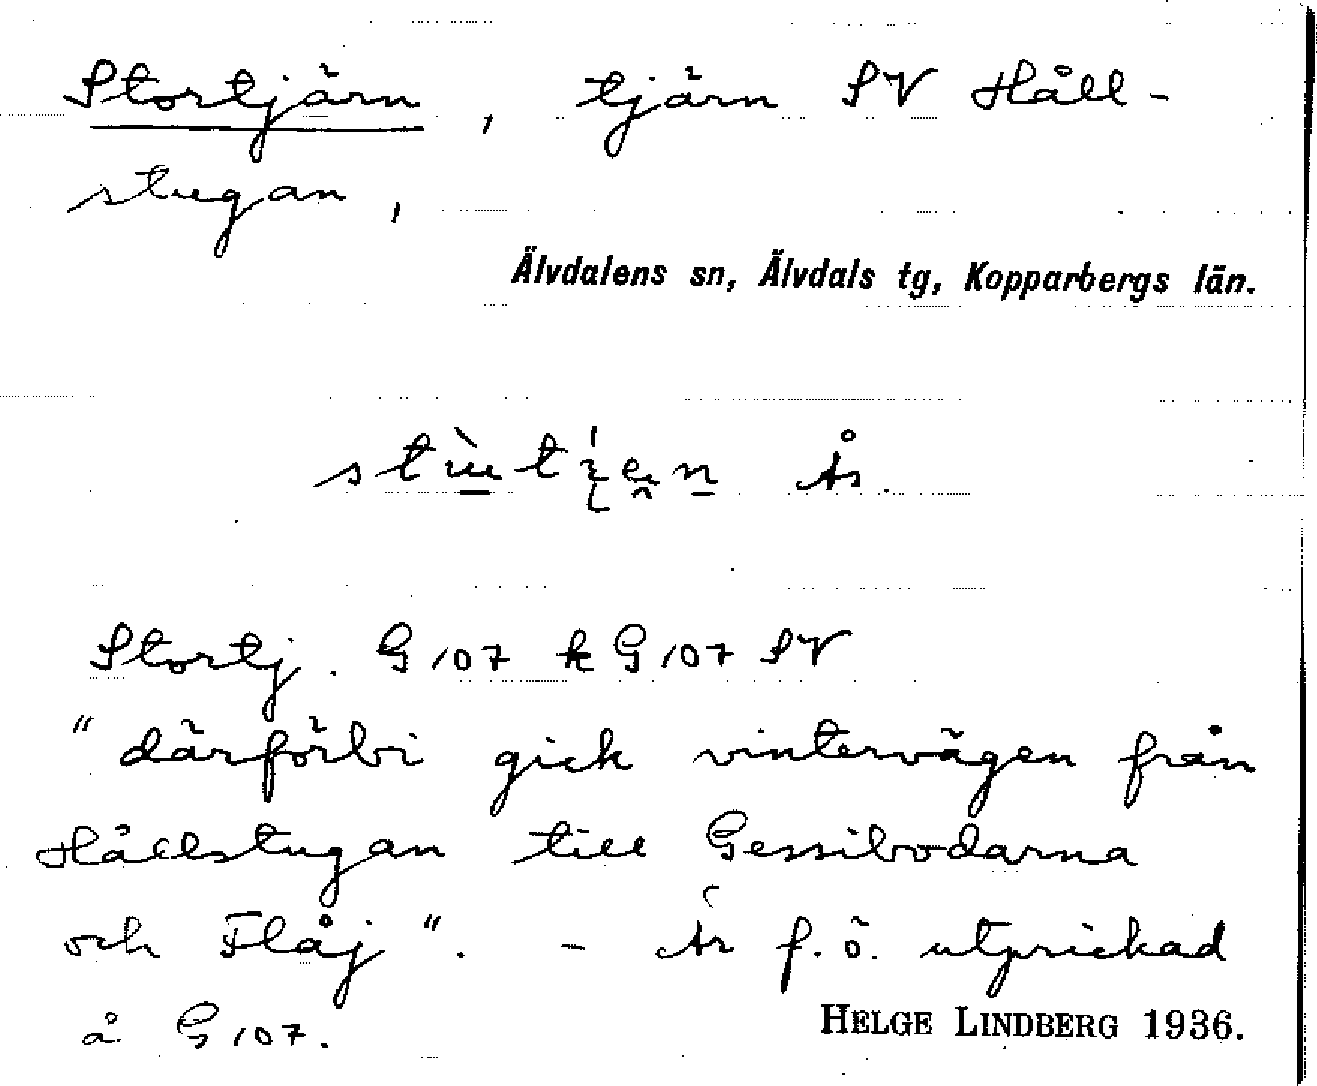 Stortjärn, tjärn SV Håll-
stugan,
Älvdalens sn, Älvdals tg, Kopparbergs län.
Ås.
Stortj. G 107 k G 107 SV
"därförbi gick vintervägen från
Hållstugan till Gessibodarna
och Flåj". - Är f.ö. utprickad
å G 107.
HELGE LINDBERG 1936.